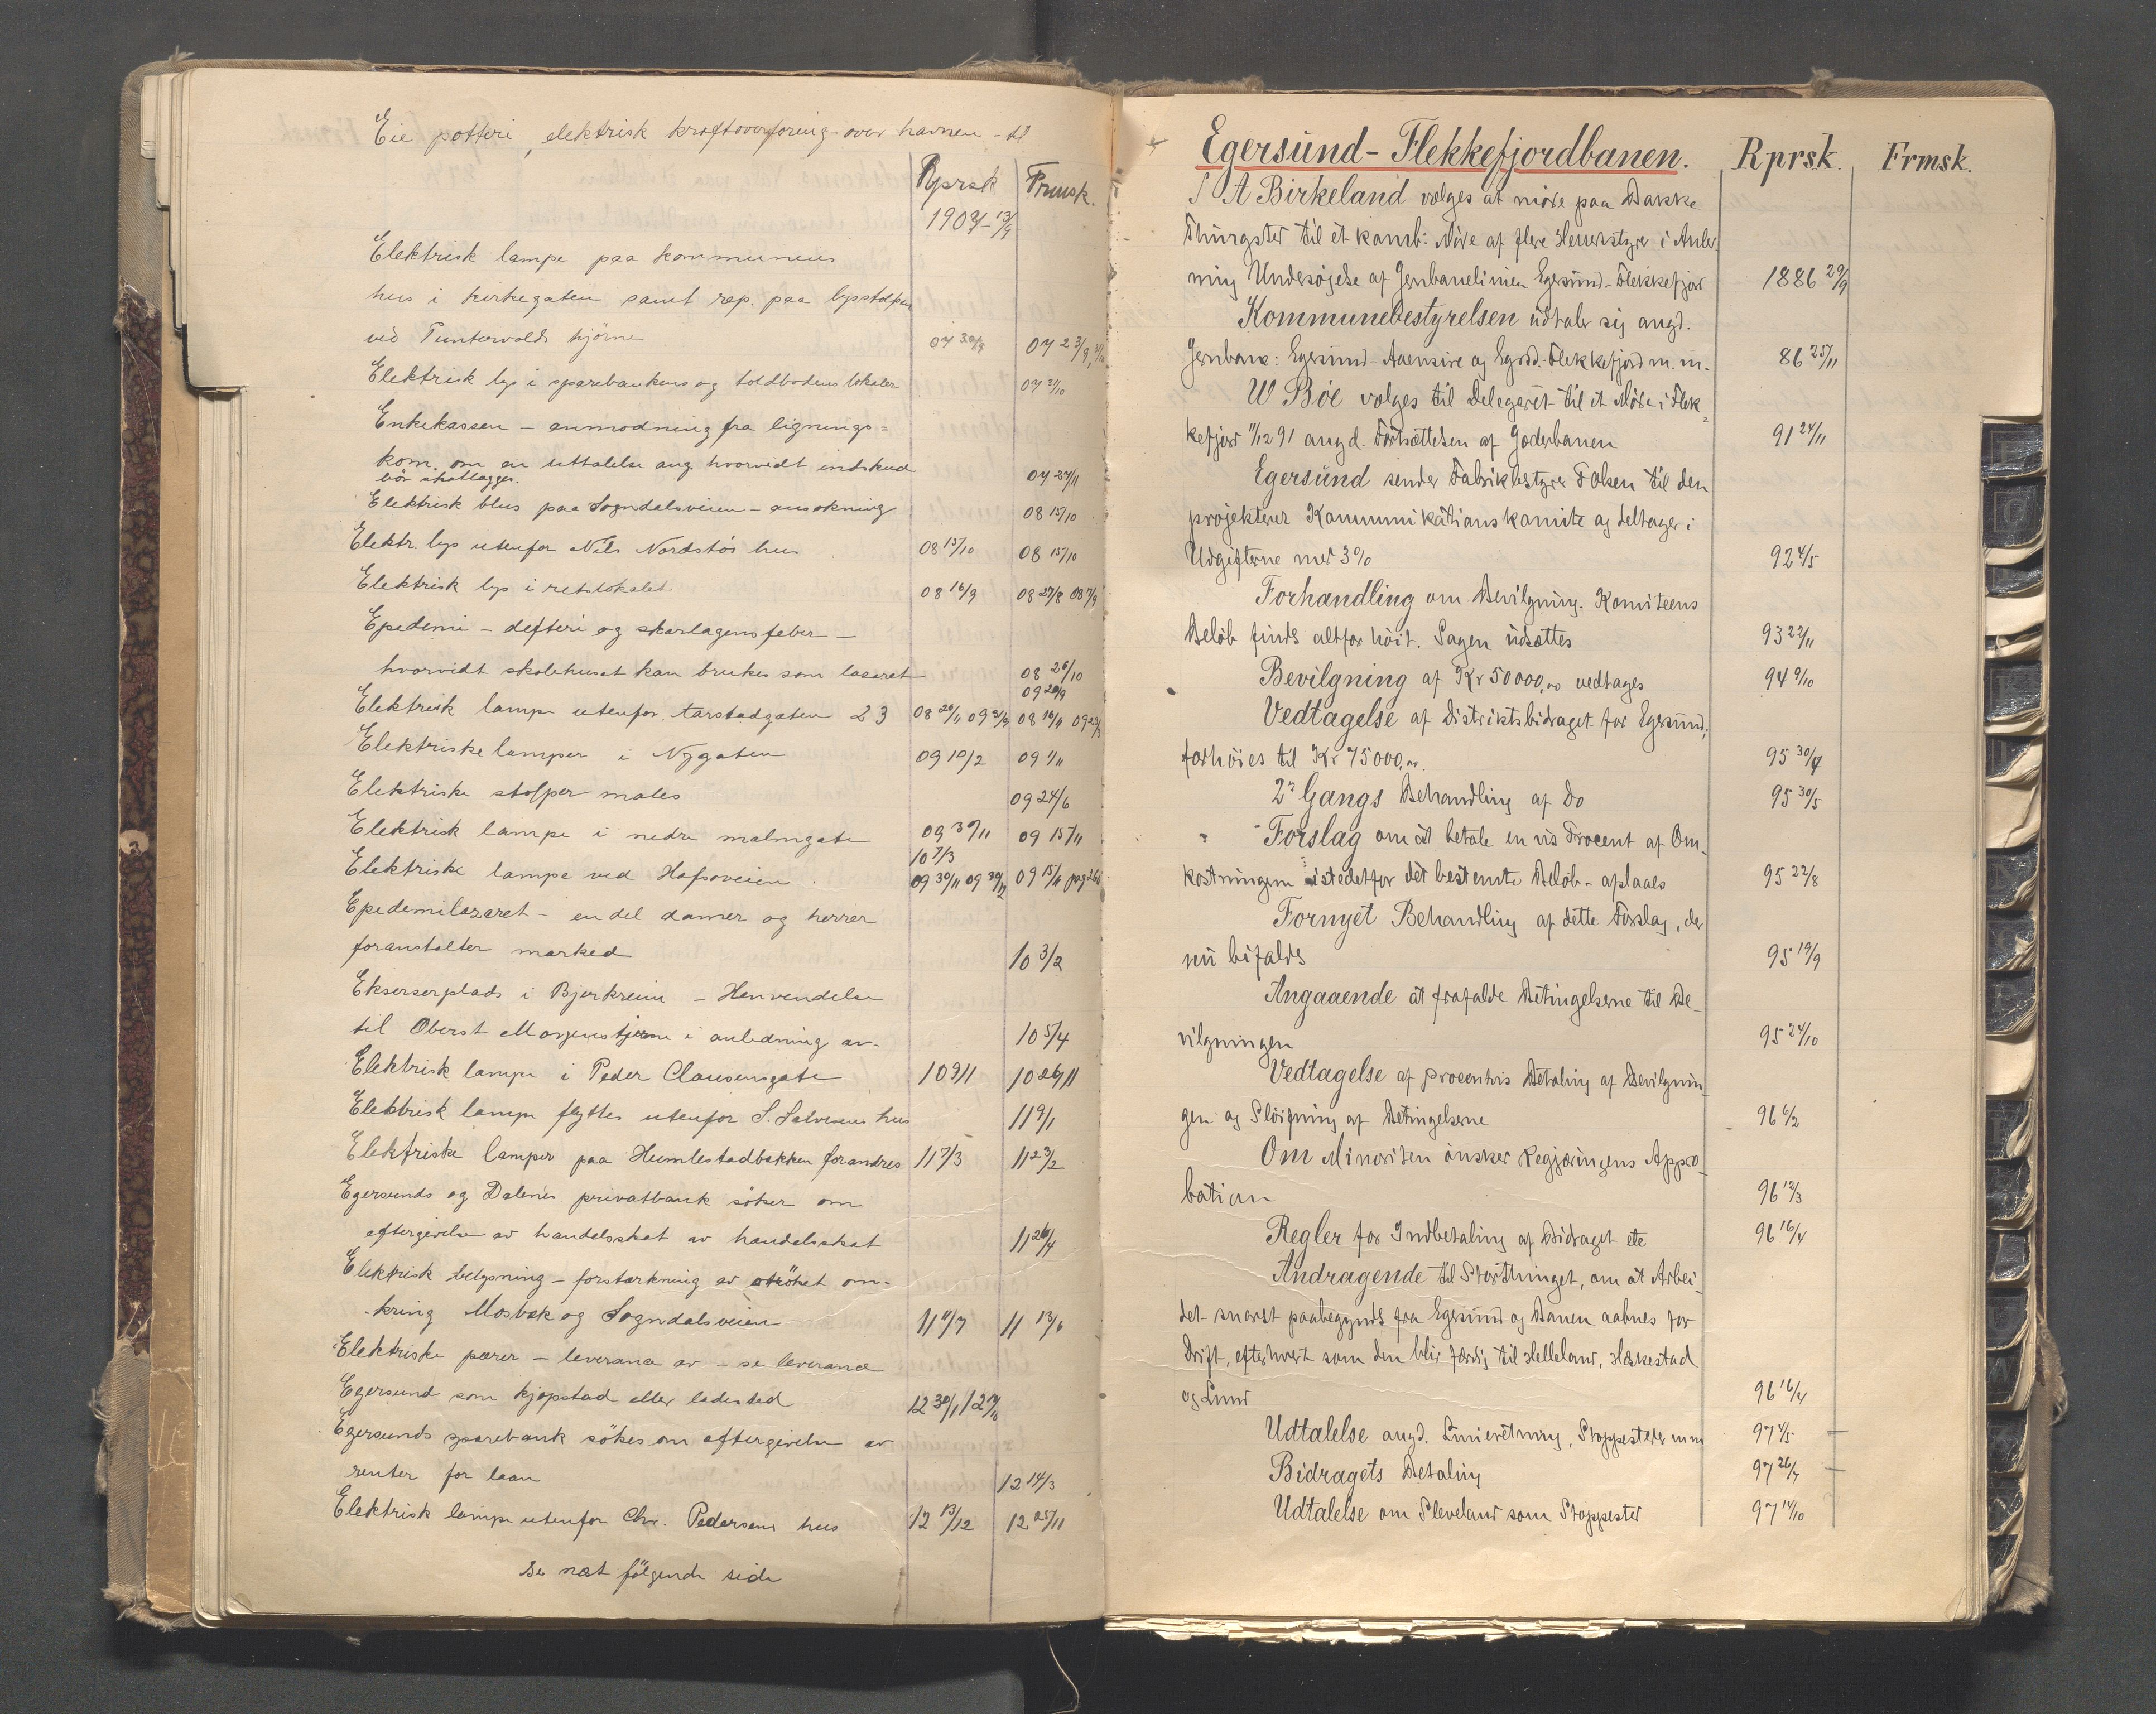 Eie potteri, elektrisk kraftoverføring over havnen - til
Rprsk Frmsk.
1907 13/9
Elektrisk lampe paa kommunens
hus i kirkegaten samt rep. paa lysstolpen
ved Puntervolds hjørne 07 30/9 07 23/9
Elektrisk lys i sparebankens og toldbodens lokaler 07 31/10
Enkekassen - anmodning fra lignings=
kom. om en uttalelse ang hvorvidt indskud
bör skatlægges. 07 27/11
Elektrisk blus paa Sogndalsveien - ansökning 08 15/10
Elektr. lys utenfor Nils Nordstös hus 08 15/10 08 15/10
Elektrisk lys i retslokalet 08 16/9 08 27/8 08 7/9
Epedemi - defteri og skarlagensfeber -
hvorvidt skolehuset kan brukes som lasaret 08 26/10
09 20/9
Elektrisk lampe utenfor Aarstadgaten 23 08 20/11 08 16/11
Elektriske lamper i Nygaten 09 10/2 09 1/11
Elektriske stolper males 09 24/6
Elektrisk lampe i nedre malmgate 09 30/11 09 15/11
10 7/3
Elektriske lampe ved Hafsoveien 09 30/11 09 15/11
Epedemilazaret - en del damer og herrer
foranstalter marked 10 3/2
Ekserserplads i Bjerkreim - Henvendelse
til Oberst Morgenstjerne i anledning av- 10 5/4
Elektrisk lampe i Peder Clausensgate 10 9/11 10 26/11
Elektrisk lampe flyttes utenfor S. Salvesens hus 11 9/1
Elektriske lamper paa Humlestadbakken forandres 11 7/3 11 23/2
Egersunds og Dalenes privatbank söker om
eftergivelse av handelsskat av handelsskat 11 26/4
Elektrisk belysning - forstærkning av ströket om-
kring Mosbæk og Sogndalsveien 11 11/7 11 13/6
Elektriske pærer - leverance av - se leverance
Egersund som kjøpstad eller ladested 12 30/1
Egersunds sparebank sökes om eftergivelse av
renter for laan 12 14/3
Elektrisk lampe utenfor Chr. Pedersens hus 12 13/12 12 25/11
Se næst fölgende side
Egersund-Flekkefjordbanen. Rprsk. Frmsk.
A Birkeland vælges at møde paa Bakke
Thingsted til et komb: Møde af flere Herredsstyrer i Anled
ning Undersøgelse af Jernbanelinien Egersund-Flekkefjord 1886 29/9
Kommunebestyrelsen udtaler sig angd.
Jernbane: Egersund-Aaensire og Egsd.-Flekkefjord m. m. 86 25/11
W Böe vælges til Delegeret til et Møde i Flek
kefjord 11/12 91 angd. Fortsættelsen af Jæderbanen 91 24/11
Egersund sender Fabrikbestyrer F Olsen til den
projekterer Kommunikationskomite og deltager i
Udgifterne med 3% 92 4/5
Forhandling om Bevilgning. Komiteens
Beløb findes altfor høit. Sagen udsættes 93 22/11
Bevilgning af Kr 50000,00 vedtages 94 9/10
Vedtagelse af Distriktsbidraget for Egersund;
forhöies til Kr 75000,00. 95 30/4
2n Gangs Behandling af Do 95 30/5
Forslag om at betale en vis Procent af Om-
kostningerne istedetfor det bestemte Beløb - afslaaes 95 22/8
Fornyet Behandling af dette Forslag, der
nu bifaldes 95 19/9
Angaaende at frafalde Betingelserne til Be-
vilgningen 95 24/10
Vedtagelse af procentvis Betaling af Bevilgnin
gen og Sløifning af Betingelserne 96 6/2
Om Minoriten ønsker Regjæringens Appro
bation 96 12/3
Regler for Indbetaling af Bidraget etc 96 16/4
Andragende til Storthinget, om at Arbei
det snarest paabegyndes fra Egersund og Banen aabnes for
Drift, efterhvert som den blir færdig til Helleland, Heskestad
og Lund 96 16/4
Udtalelse angd. Linieretning, Stoppesteder m m 97 4/5
Bidragets Betaling 97 26/7
Udtalelse om Sleveland som Stoppested 97 14/10